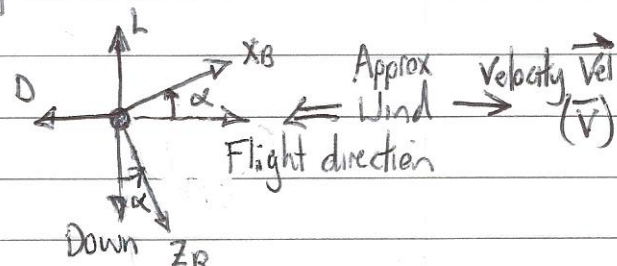 L
X_B
D
α
Approx
Wind
Velocity, Vel
(V̄)
Flight direction
α
Down
Z_B